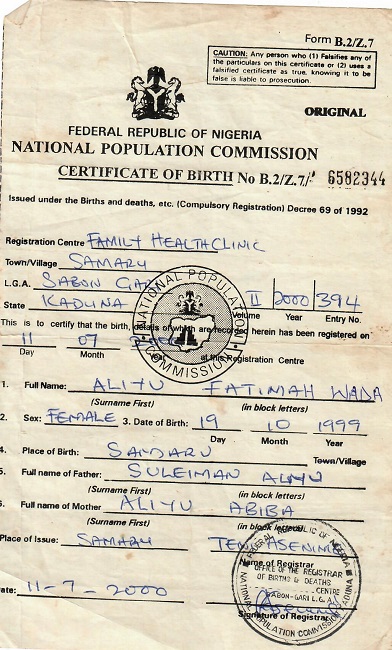 Form B.2/Z.7
CAUTION: Any person who (1) Falsifies any of
the particulars on this certificate or (2) uses a
falsified certificate as true, knowing it to be
false is liable to prosecution.
ORIGINAL
FEDERAL REPUBLIC OF NIGERIA
NATIONAL POPULATION COMMISSION
CERTIFICATE OF BIRTH No B.2/Z.7/ 6582344
Issued under the Births and deaths, etc. (Compulsory Registration) Decree 69 of 1992
Registration Centre FAMILY HEALTH CLINIC
Town/Village SAMARU
L.G.A. SABON GARI
State KADUNA II 2000 394
Volume Year Entry No.
NATIONAL POPULATION COMMISSION
This is to certify that the birth, details of which are recorded herein has been registered on
11 07
Day Month at this Registration Centre
1. Full Name: ALIYU FATIMAH WADA
(Surname First) (in block letters)
2. Sex: FEMALE 3. Date of Birth: 19 10 1999
Day Month Year
4. Place of Birth: SAMARU Town/Village
5. Full name of Father: SULEIMAN ALIYU
(Surname First) (in block letters)
Full name of Mother ALIYU ABIBA
(Surname First) (in block letters)
Place of Issue: SAMARU
Name of Registrar
FEDERAL REPUBLIC OF NIGERIA
OFFICE OF THE REGISTRAR
OF BIRTHS & DEATHS
CENTRE
SABON-GARI L.G.A.
NATIONAL POPULATION COMMISSION KADUNA
Date: 11-7-2000
Signature of Registrar